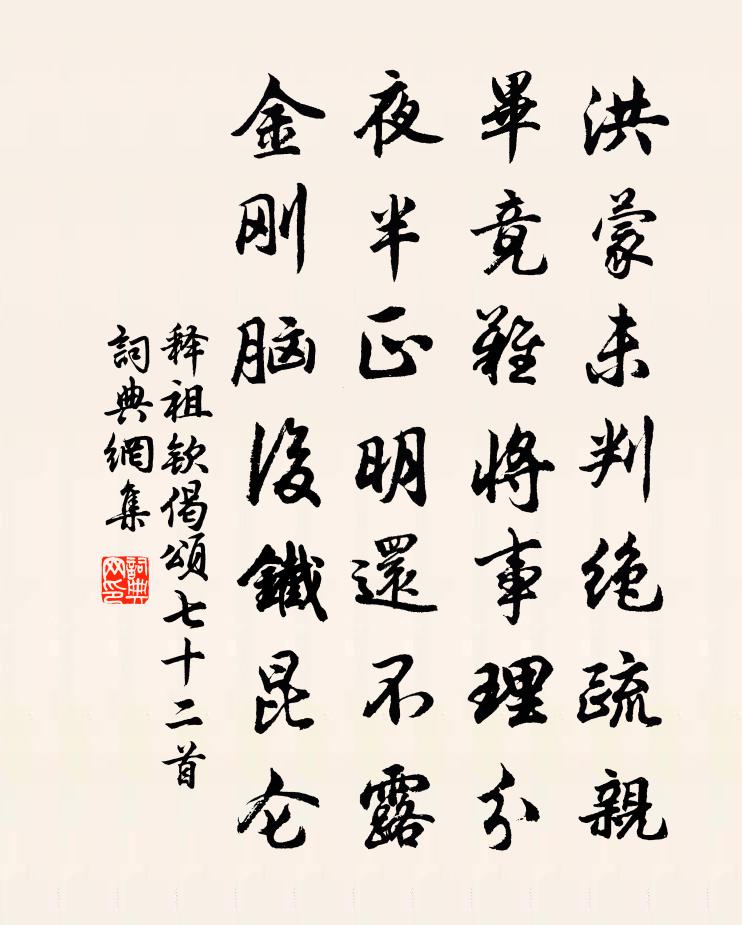 洪蒙未判絶疏親
畢竟難將事理分
夜半正明還不露
金刚脑後鐵昆仑
释祖欽偈頌七十二首
詞典網集
詞典网印